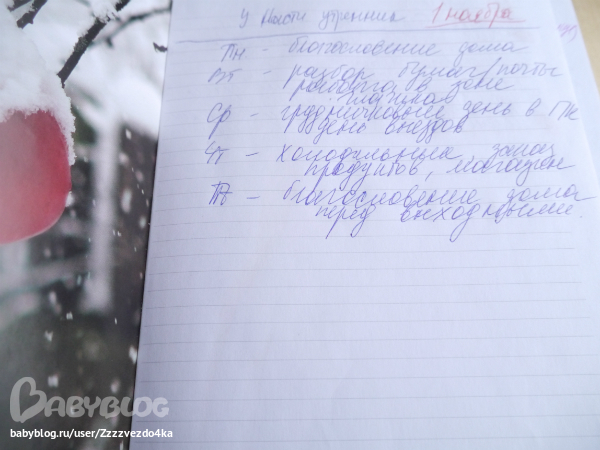 у Насти утренник 1 ноября
Пн - благословение дома
Вт - разбор бумаг/почты
работа в зоне
планшал
Ср - грудничковый день в ГП
день выездов
Чт - холодильник, запас
продуктов, магазин
Пт - благословение дома
перед выходными.
BABYBLOG
babyblog.ru/user/Zzzzvezdo4ka